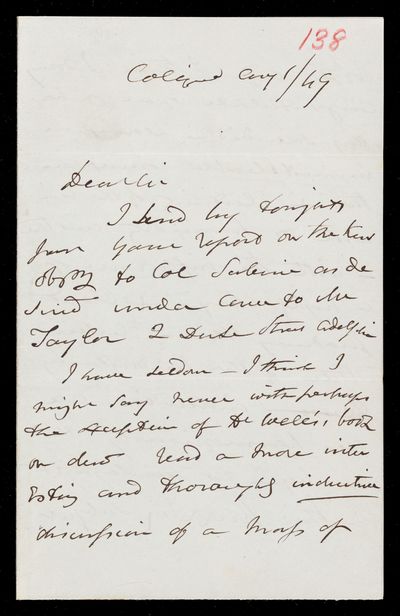 138
Collingwood Aug 1/49
Dear Sir
I send by tonight's
from your report on the Kew
Obsy to Col Sabine as de
sired under cover to Mr
Taylor 2 Duke Street Adelphi
I have seldom – I think I
might say never with perhaps
the exception of Dr Wells's book
on dew read a more inter
esting and thoroughly inductive
discussion of a mass of